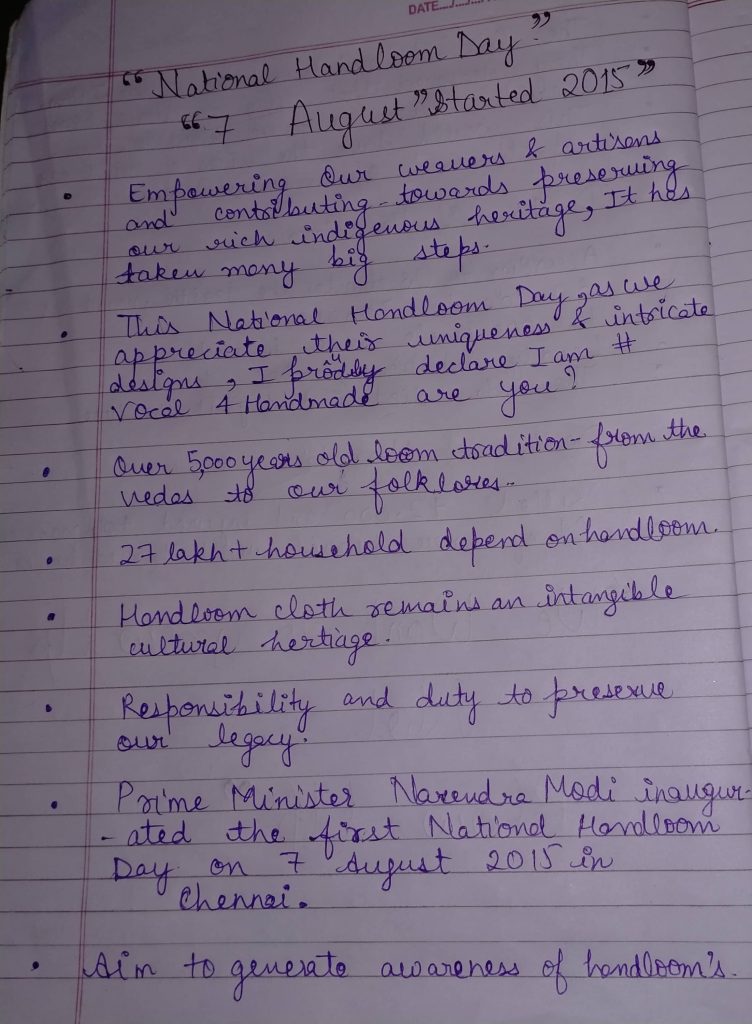 DATE..../..../....
“ National Handloom Day ”
“ 7 August ” Started 2015 ”
• Empowering Our weavers & artisans
and contributing towards preserving
our rich indigenous heritage, It has
taken many big steps.
• This National Handloom Day, as we
appreciate their uniqueness & intricate
designs, I proudly declare I am #
Vocal 4 Handmade are you?
• Over 5,000 years old loom tradition - from the
vedas to our folklores.
• 27 lakh+ household depend on handloom.
• Handloom cloth remains an intangible
cultural hertiage.
• Responsibility and duty to preserve
our legacy.
• Prime Minister Narendra Modi inaugur-
-ated the first National Handloom
Day on 7 August 2015 in
Chennai.
• Aim to generate awareness of handloom's.